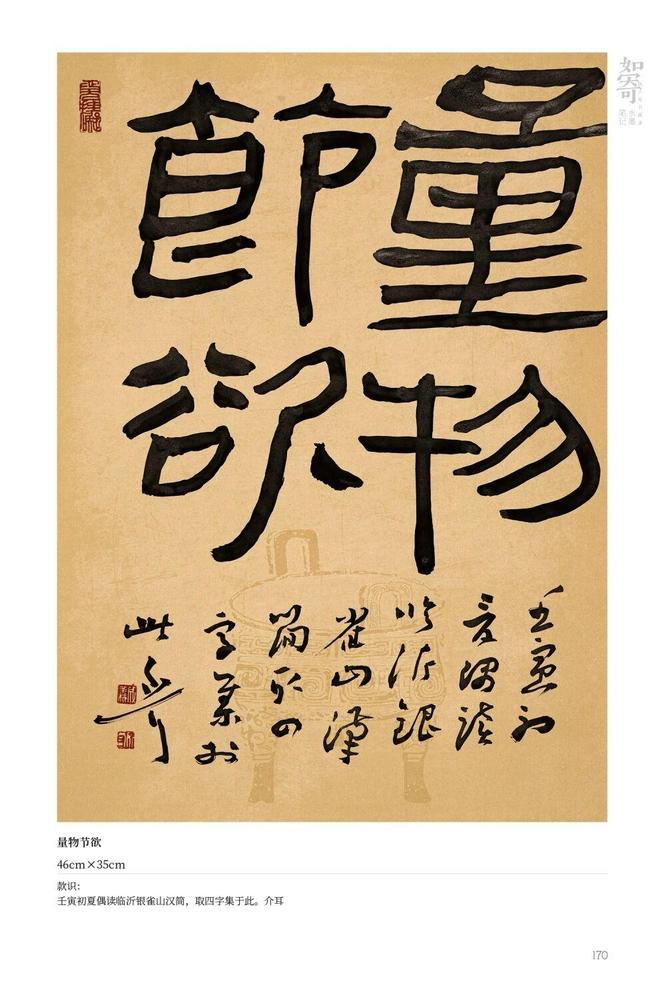 量物
節欲
壬寅初
夏偶读
临沂银
雀山汉
简取四
字集于
此 介耳
如寄
水墨
笔记
量物节欲
46cm×35cm
款识：
壬寅初夏偶读临沂银雀山汉简，取四字集于此。介耳
170